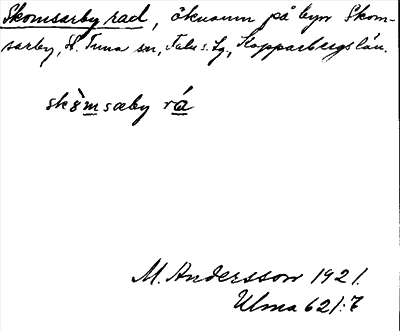 Skomsarby rad, öknamn på byn Skom-
sarby, St. Tuna sn, Falu s. Lg., Kopparbergs län.
skòmsæby rá
M. Andersson 1921.
Ulma 621:7